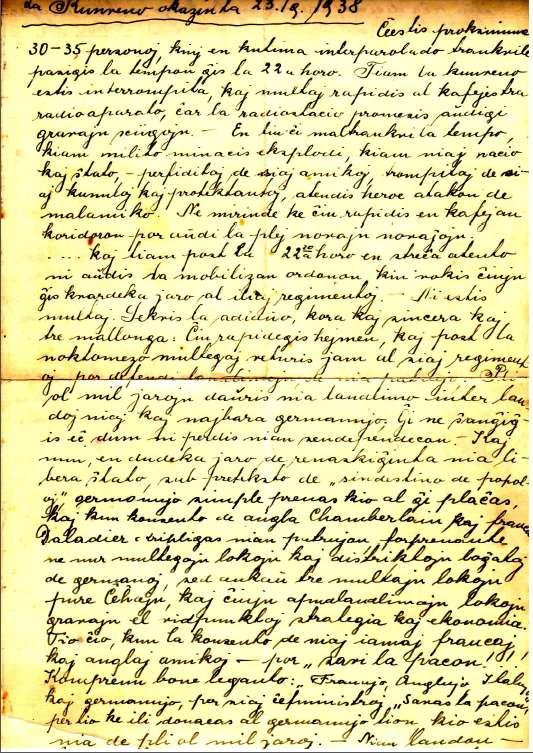 da Kunveno okazinta 23.IX. 1938
Ĉeestis proksimume
30-35 personoj, kiuj en kutima interparolado trankvile
pasigis la tempon ĝis la 22a horo. Tiam la kunveno
estis interrompita, kaj multaj rapidis al kafejestra
radioaparato, ĉar la radiostacio promesis aŭdigi
gravajn sciigojn. — En tiu ĉi maltrankvila tempo,
kiam milito minacis eksplodi, kiam niaj nacio
kaj ŝtato, — perfiditaj de siaj amikoj, trompitaj de si-
aj kunuloj kaj protektantoj, atendis heroe atakon de
malamiko. Ne mirinde ke ĉiu rapidis en kafejan
koridoron por aŭdi la plej novajn novaĵojn.
.... kaj tiam post la 22a horo en streĉa atento
ni aŭdis la mobilizan ordonon, kiu vokis ĉiujn
ĝis kvardeka jaro al iliaj regimentoj. — Ni estis
multaj. Sekvis la adiaŭo, kora kaj sincera kaj
tre mallonga: Ĉiu rapidegis hejmen, kaj post la
noktomezo multegaj veturis jam al siaj regiment
oj por defendi
ol mil jarojn daŭris nia landlimo inter lan
doj niaj kaj najbara germanujo. Ĝi ne ŝanĝiĝ-
is eĉ dum ni perdis nian sendependecon — Kaj
nun, en dudeka jaro de renaskiĝinta nia li-
bera ŝtato, sub preteksto de „sindestino de popol-
oj" germanujo simple prenas kio al ĝi plaĉas,
kaj kun konsento de angla Chamberlain kaj franca
Daladier ĉripligas nian patrujon, forprenante
ne nur multegajn lokojn kaj distriktojn loĝataj
de germanoj, sed ankaŭ tre multajn lokojn
pure Ĉeĥajn, kaj ĉiujn apudlandlimajn lokojn
gravajn el vidpunktoj strategia kaj ekonomia.
Tio ĉio, kun la konsento de niaj iamaj francaj,
kaj anglaj amikoj — por „savi la pacon"!
Komprenu bone leganto: „Francujo, Anglujo Italujo
kaj germanujo, per siaj ĉefministroj „Savas la pacon,
per tio ke ili donacas al germanujo tion kio estis
nia de pli ol mil jaroj. — Nian landon —